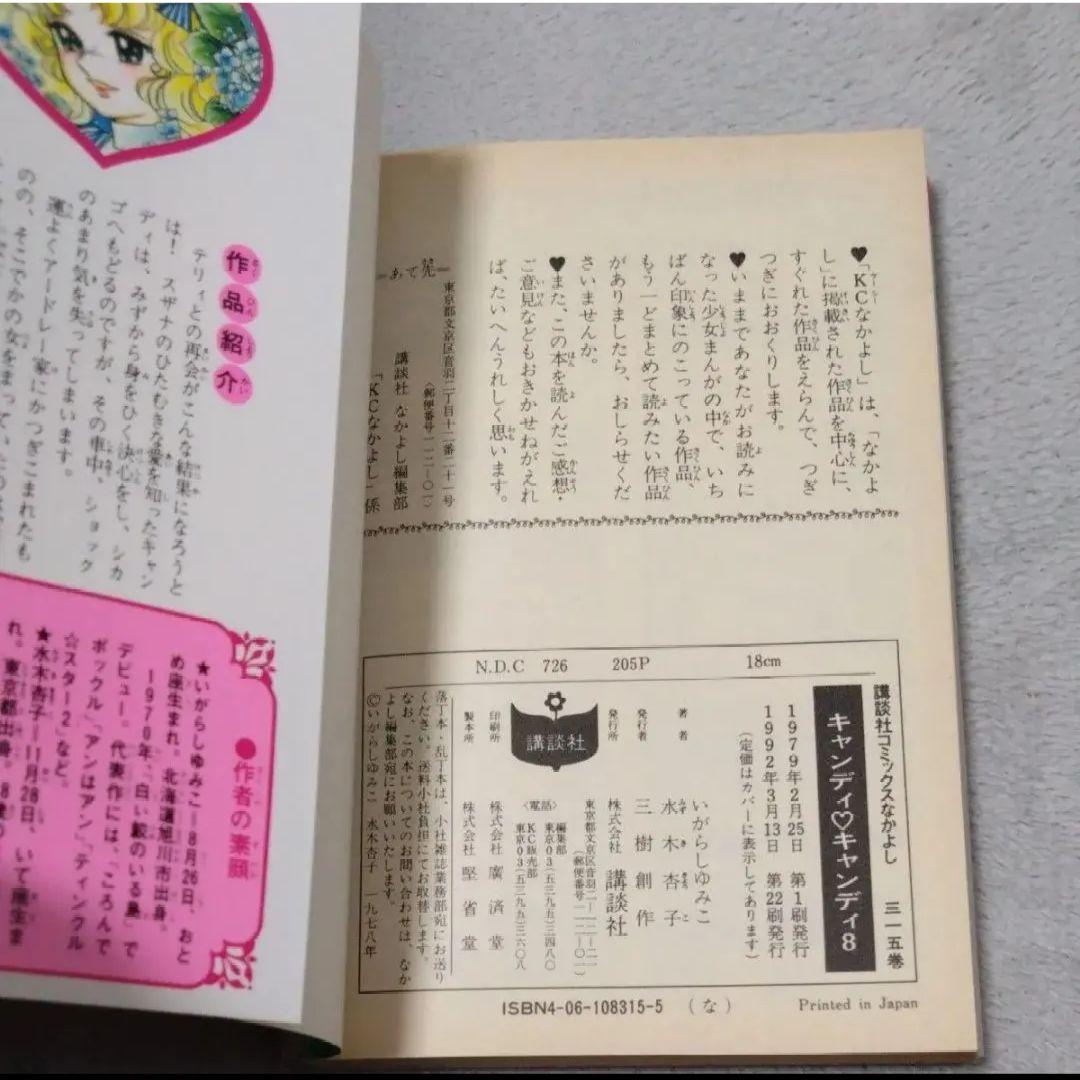 ♥「KCなかよし」は、「なかよ
し」に掲載された作品を中心に、
すぐれた作品をえらんで、つぎ
つぎにおおくりします。
♥いままであなたがお読みに
なった少女まんがの中で、いち
ばん印象にのこっている作品、
もう一どまとめて読みたい作品
がありましたら、おしらせくだ
さいませんか。
♥また、この本を読んだご感想・
ご意見などもおきかせねがえれ
ば、たいへんうれしく思います。
=あて先=
東京都文京区音羽二丁目十二番二十一号
〈郵便番号一一二-〇一〉
講談社 なかよし編集部
「KCなかよし」係
N.D.C 726 205P 18cm
講談社コミックスなかよし 三一五巻
キャンディ♡キャンディ8
1979年2月25日 第1刷発行
1992年3月13日 第22刷発行
(定価はカバーに表示してあります)
著者 いがらしゆみこ
水木杏子
発行者 三樹創作
発行所 株式会社 講談社
東京都文京区音羽二-一二-二一
(郵便番号一一二-〇一)
〈電話〉編集部 東京03(五三九五)三四八〇
KC販売部 東京03(五三九五)三六〇八
講談社
印刷所 株式会社 廣済堂
製本所 株式会社 堅省堂
落丁本・乱丁本は、小社雑誌業務部宛にお送り
ください。送料小社負担にてお取替します。
なお、この本についてのお問い合わせは、なか
よし編集部宛にお願いいたします。
©いがらしゆみこ 水木杏子 一九七八年
ISBN4-06-108315-5 (な)
Printed in Japan
作品紹介
テリィとの再会がこんな結果になろうと
は! スザナのひたむきな愛を知ったキャン
ディは、みずから身をひく決心をし、シカ
ゴへもどるのですが、その車中、ショック
のあまり気を失ってしまいます。
運よくアードレー家にかつぎこまれたも
のの、そこでかの女をまって
●作者の素顔
★いがらしゆみこ—8月26日、おと
め座生まれ。北海道旭川市出身。
1970年、「白い鮫のいる島」で
デビュー。代表作には、「ころんで
ポックル」「アンはアン」「ティンクル
☆スター2」など。
★水木杏子—11月28日、いて座生ま
れ。東京都出身。